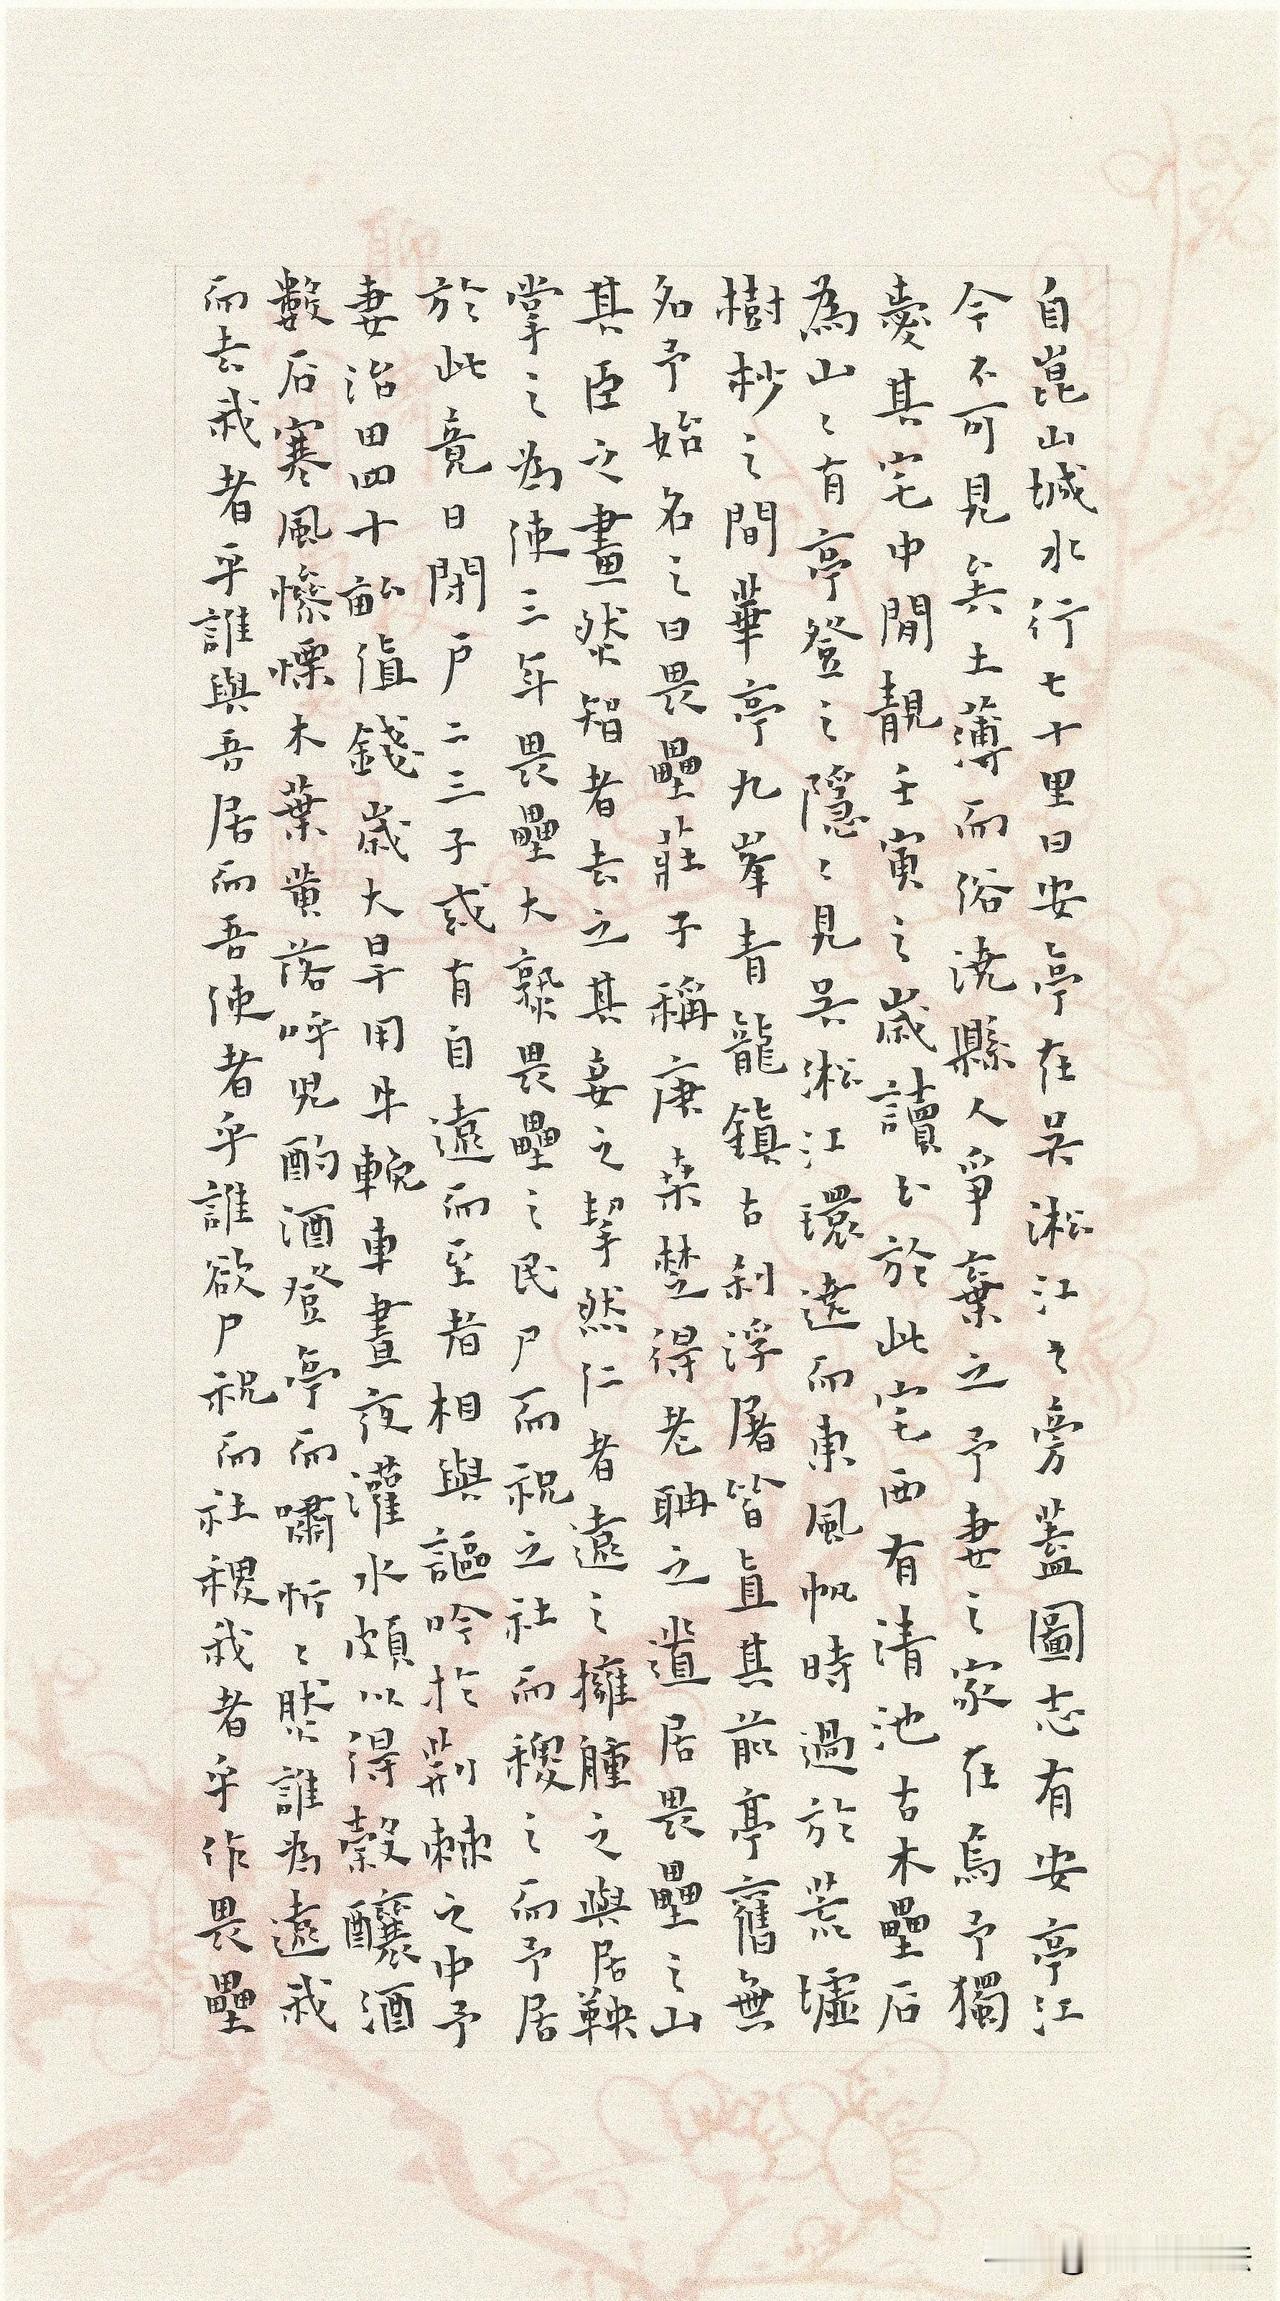 自崑山城水行七十里曰安亭在吳淞江之旁蓋圖志有安亭江
今不可見矣土薄而俗澆縣人爭棄之予妻之家在焉予獨
愛其宅中閒靚壬寅之歲讀書於此宅西有清池古木壘石
為山々有亭登之隱々見吳淞江環遶而東風帆時過於荒墟
樹杪之間華亭九峯青龍鎮古刹浮屠皆直其前亭舊無
名予始名之曰畏壘莊子稱庚桑楚得老聃之道居畏壘之山
其臣之畫然智者去之其妾之挈然仁者遠之擁腫之與居鞅
掌之為使三年畏壘大熟畏壘之民尸而祝之社而稷之而予居
於此竟日閉戶二三子或有自遠而至者相與謳吟於荊棘之中予
妻治田四十畝值錢歲大旱用牛輓車晝夜灌水頗以得穀釀酒
數石寒風慘慄木葉黃落呼兒酌酒登亭而嘯忻々然誰為遠我
而去我者乎誰與吾居而吾使者乎誰欲尸祝而社稷我者乎作畏壘